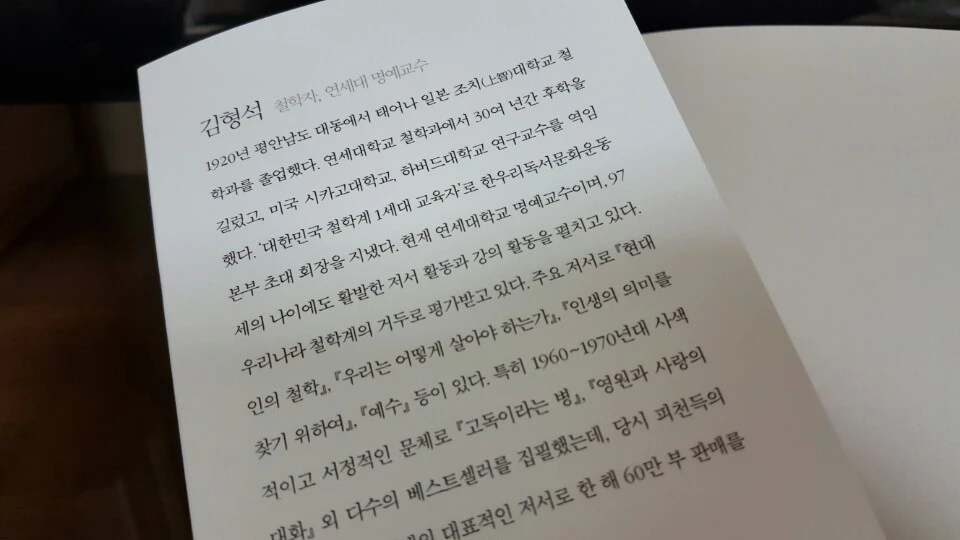 김형석 철학자, 연세대 명예교수
1920년 평안남도 대동에서 태어나 일본 조치(上智)대학교 철
학과를 졸업했다. 연세대학교 철학과에서 30여 년간 후학을
길렀고, 미국 시카고대학교, 하버드대학교 연구교수를 역임
했다. ‘대한민국 철학계 1세대 교육자’로 한우리독서문화운동
본부 초대 회장을 지냈다. 현재 연세대학교 명예교수이며, 97
세의 나이에도 활발한 저서 활동과 강의 활동을 펼치고 있다.
우리나라 철학계의 거두로 평가받고 있다. 주요 저서로 『현대
인의 철학』, 『우리는 어떻게 살아야 하는가』, 『인생의 의미를
찾기 위하여』, 『예수』 등이 있다. 특히 1960~1970년대 사색
적이고 서정적인 문체로 『고독이라는 병』, 『영원과 사랑의
대화』 외 다수의 베스트셀러를 집필했는데, 당시 피천득의
대표적인 저서로 한 해 60만 부 판매를